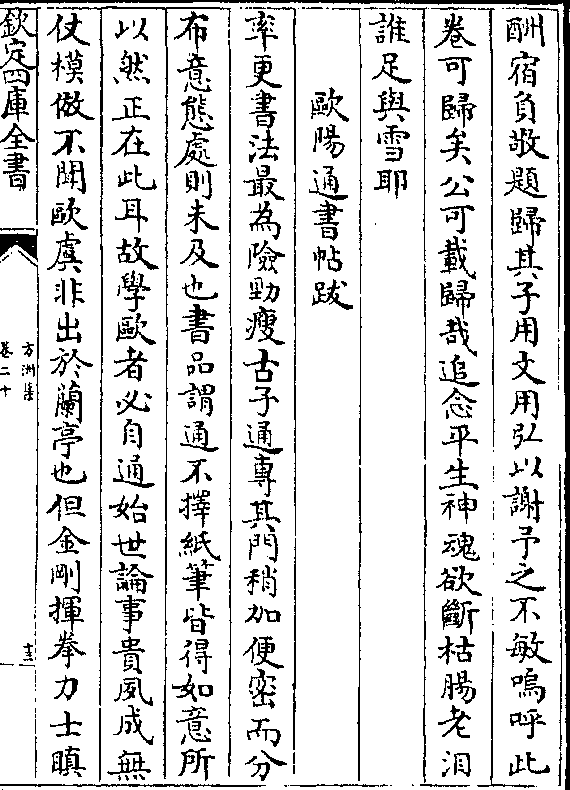 酬宿負敬題歸其子用文用弘以謝予之不敏嗚呼此
卷可歸矣公可載歸哉追念平生神魂欲斷枯腸老淚
誰足與雪耶
歐陽通書帖跋
率更書法最為險勁瘦古子通專其門稍加便密而分
布意態處則未及也書品謂通不擇紙筆皆得如意所
以然正在此耳故學歐者必自通始世論事貴夙成無
仗模倣不聞歐虞非出於蘭亭也但金剛揮拳力士瞋
欽定四庫全書
方洲集
卷二十